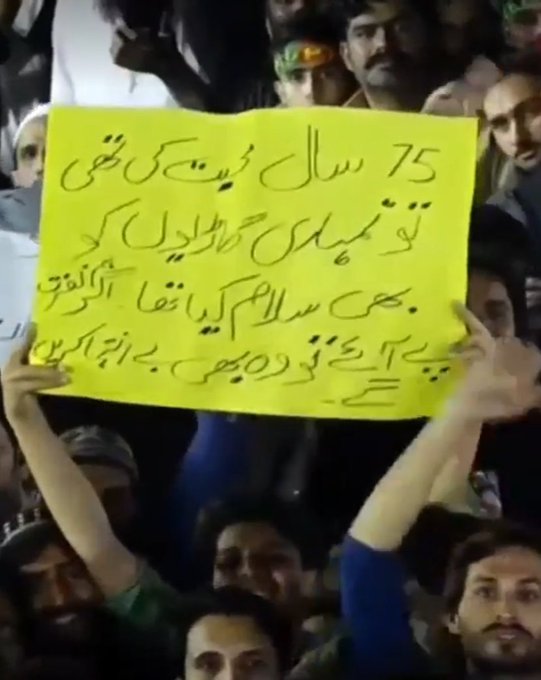 75 سال محبت کی تھی
تو تمہاری گاڑیوں کو
بھی سلام کیا تھا اگر ہم نفرت
پے آئے تو وہ بھی بے انتہا کریں
گے۔